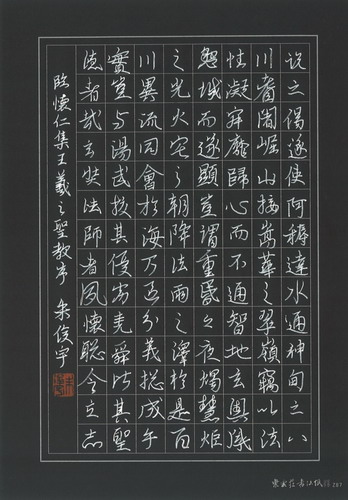 說之偈遂使阿耨達水通神甸之八
川耆闍崛山接嵩華之翠嶺竊以法
性凝寂靡歸心而不通智地玄奧感
懇誠而遂顯豈謂重昏之夜燭慧炬
之光火宅之朝降法雨之澤於是百
川異流同會於海万區分義揔成乎
實豈與湯武校其優劣堯舜比其聖
德者哉玄奘法師者夙懷聰令立志
臨懷仁集王羲之聖教序 俊宇